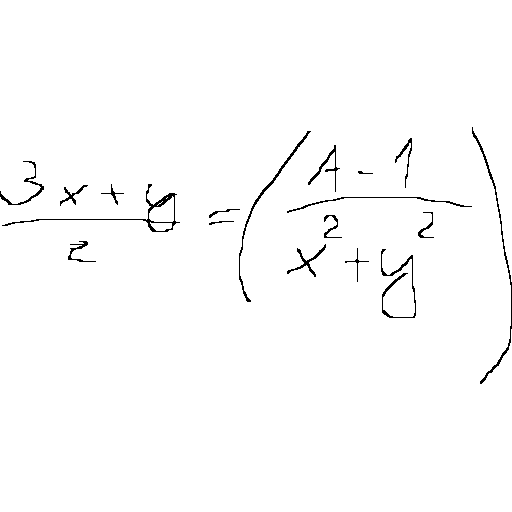 (3x+y)/2 = ((A-1)/(x²+y²))